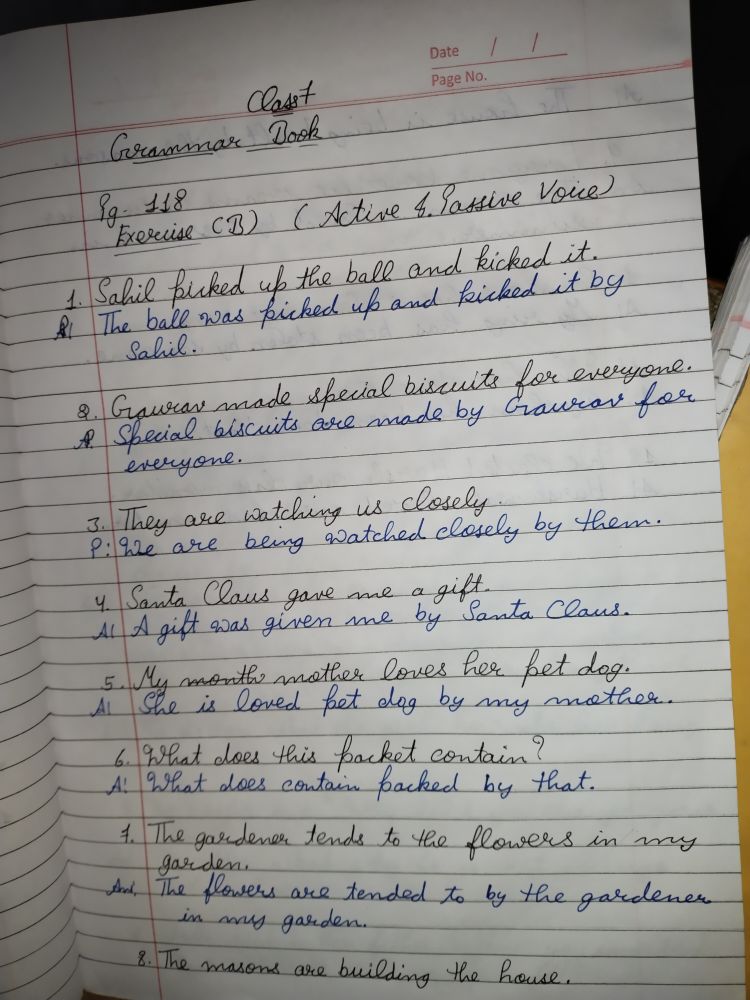 Date / /
Page No.
Class 7
Grammar Book
Pg - 118
Exercise (B) (Active & Passive Voice)
1. Sahil picked up the ball and kicked it.
A! The ball was picked up and kicked it by
Sahil.
2. Gaurav made special biscuits for everyone.
A. Special biscuits are made by Gaurav for
everyone.
3. They are watching us closely.
P: We are being watched closely by them.
4. Santa Claus gave me a gift.
A! A gift was given me by Santa Claus.
5. My mother loves her pet dog.
A! She is loved pet dog by my mother.
6. What does this packet contain?
A! What does contain packed by that.
7. The gardener tends to the flowers in my
garden.
Ans. The flowers are tended to by the gardener
in my garden.
8. The masons are building the house.